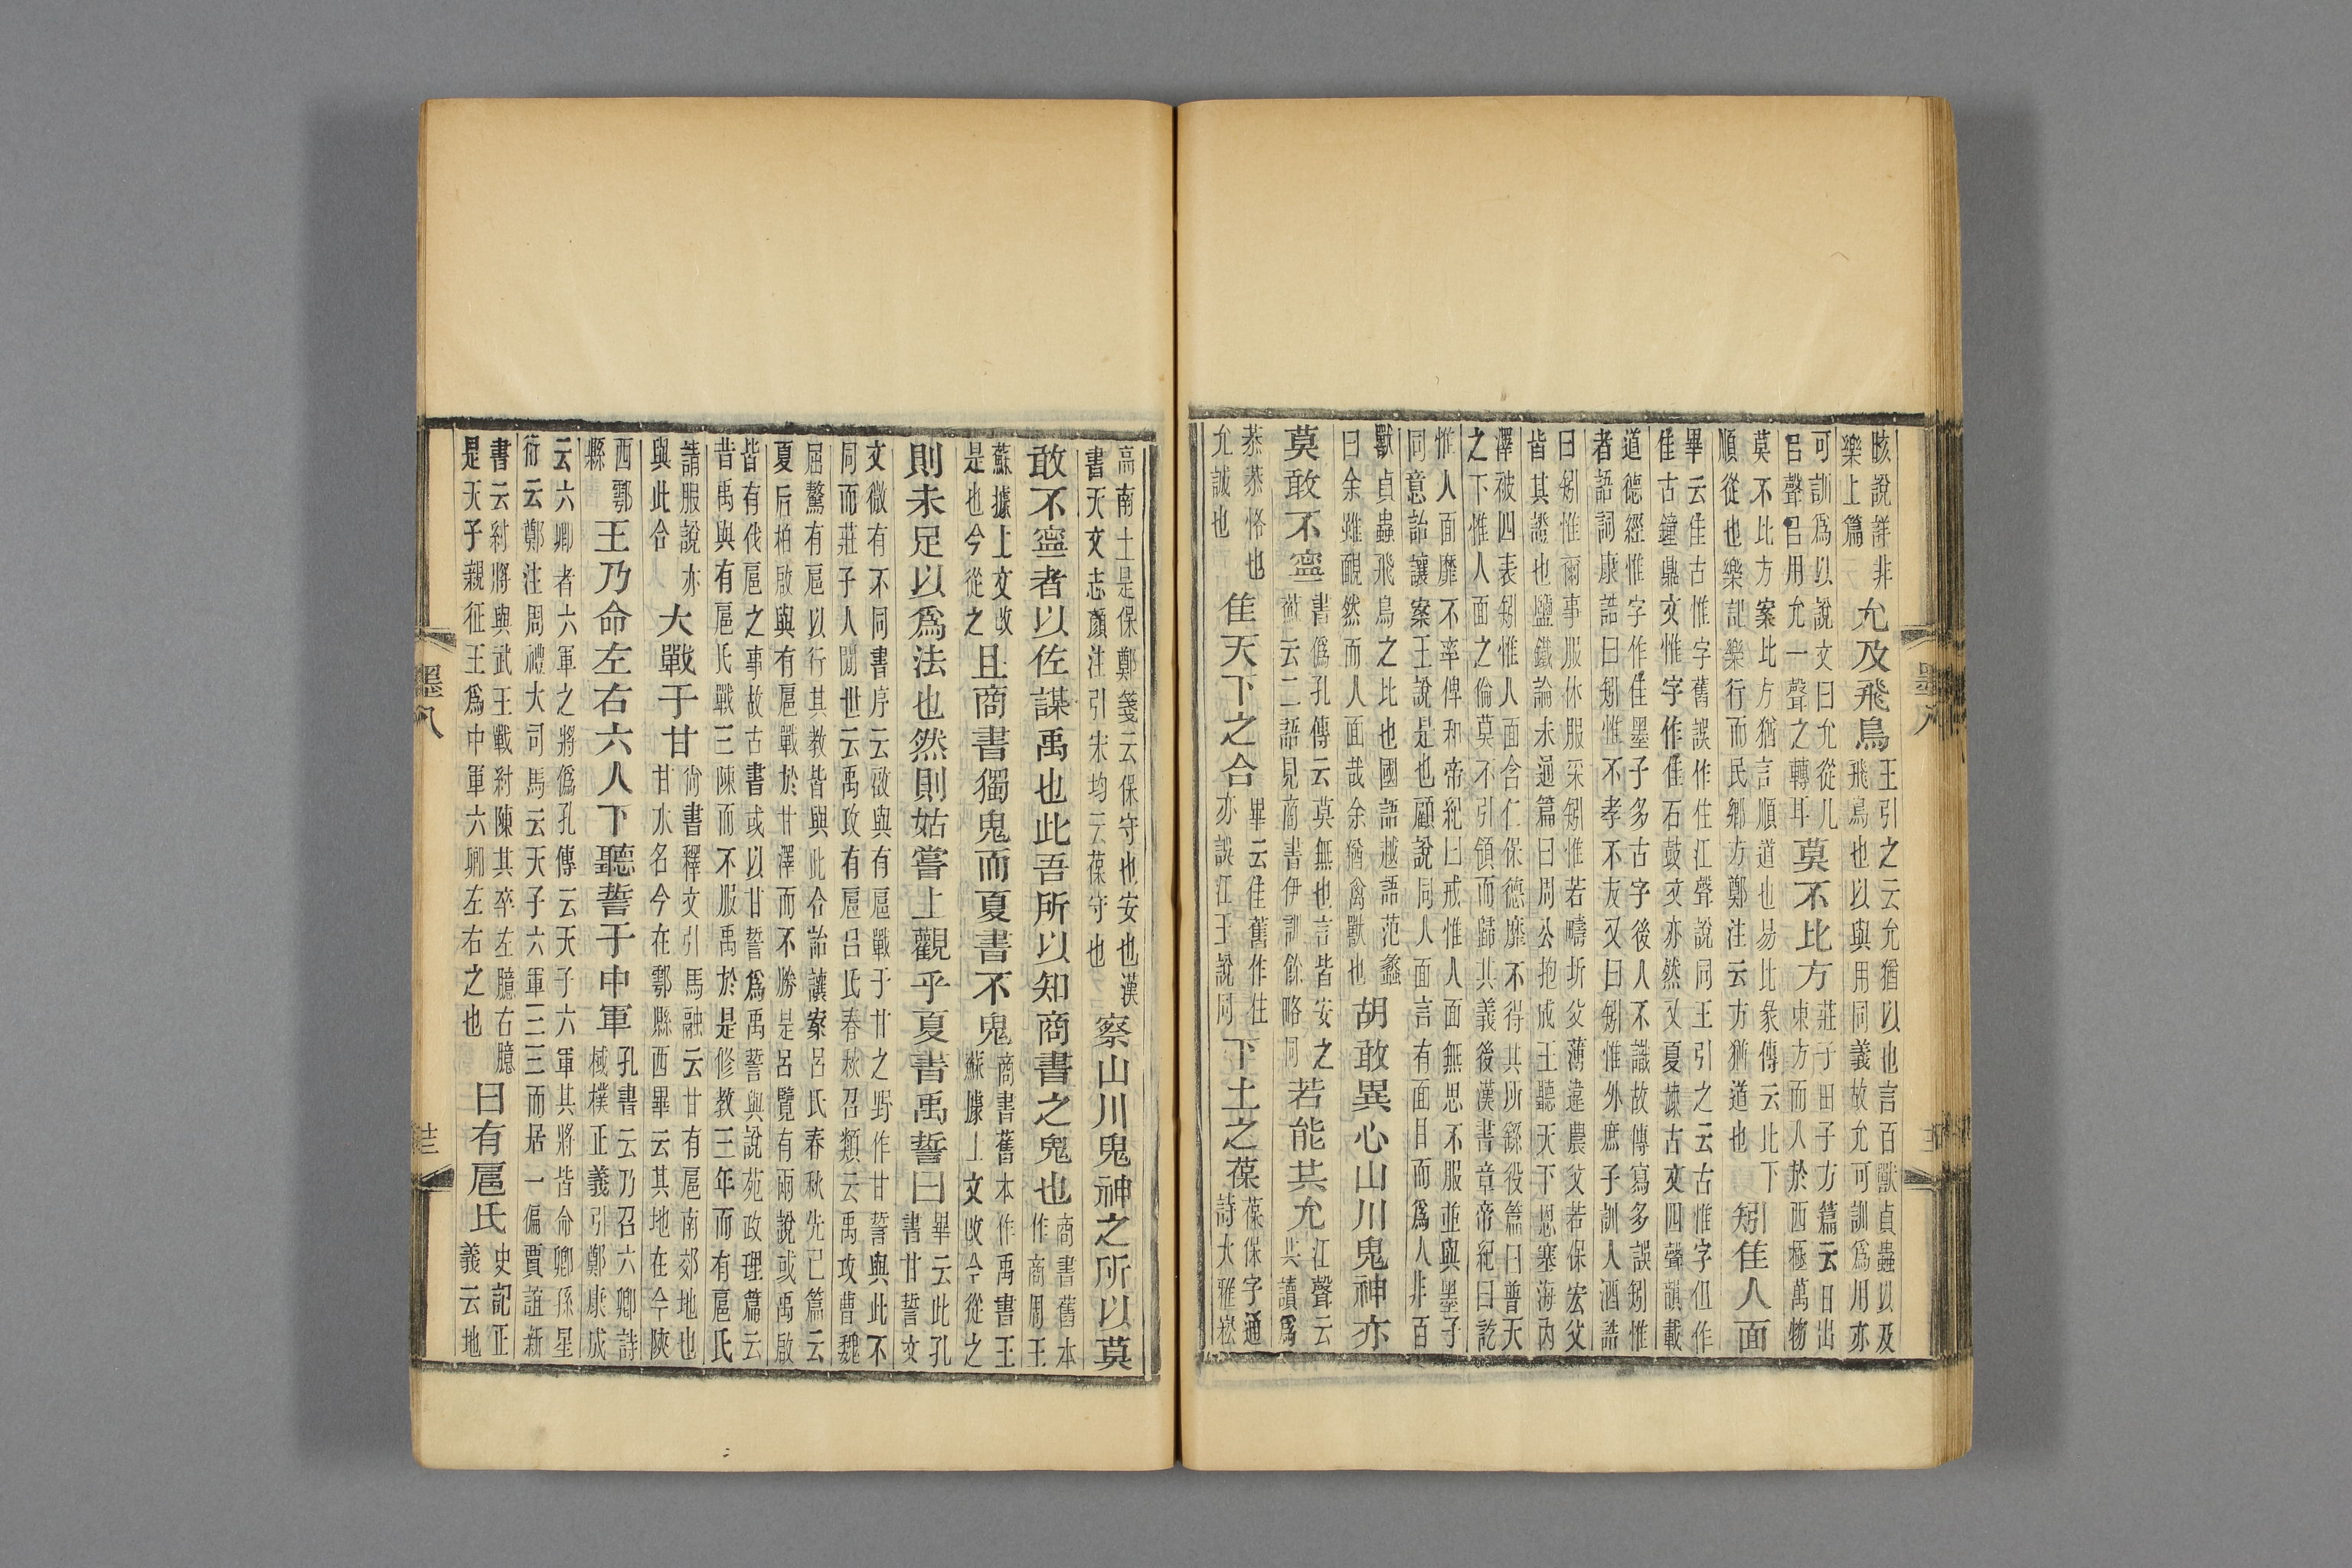 晐說詳非樂上篇允及飛鳥王引之云允猶以也言百獸貞蟲以及飛鳥也以與用同義故允可訓爲用亦
可訓爲以說文曰允從儿㠯聲㠯用允一聲之轉耳莫不比方莊子田子方篇云日出東方而入於西極萬物
莫不比方案比方猶言順道也易比彖傳云比下順從也樂記樂行而民鄉方鄭注云方猶道也矧隹人面
畢云隹古惟字舊誤作住江聲說同王引之云古惟字但作隹古鐘鼎文惟字作隹石鼓文亦然又夏竦古文四聲韻載
道德經惟字作隹墨子多古字後人不識故傳寫多誤矧惟者語詞康誥曰矧惟不孝不友又曰矧惟外庶子訓人酒誥
曰矧惟爾事服休服采矧惟若疇圻父薄違農父若保宏父皆其證也鹽鐵論未通篇曰周公抱成王聽天下恩塞海內
澤被四表矧惟人面含仁保德靡不得其所繇役篇曰普天之下惟人面之倫莫不引領而歸其義後漢書章帝紀曰訖
惟人面靡不率俾和帝紀曰戒惟人面無思不服並與墨子同意詒讓案王說是也顧說同人面言有面目而爲人非百
獸貞蟲飛鳥之比也國語越語范蠡曰余雖靦然而人面哉余猶禽獸也胡敢異心山川鬼神亦
莫敢不寧書僞孔傳云莫無也言皆安之蘇云二語見商書伊訓餘略同若能共允江聲云共讀爲
恭恭恪也允誠也隹天下之合畢云隹舊作住亦誤江王說同下土之葆葆保字通詩大雅崧
高南土是保鄭箋云保守也安也漢書天文志顏注引宋均云葆守也察山川鬼神之所以莫
敢不寧者以佐謀禹也此吾所以知商書之鬼也商書舊本作商周王
蘇據上文改是也今從之且商書獨鬼而夏書不鬼商書舊本作禹書王蘇據上文改今從之
則未足以爲法也然則姑嘗上觀乎夏書禹誓曰畢云此孔書甘誓文
文微有不同書序云啟與有扈戰于甘之野作甘誓與此不同而莊子人閒世云禹攻有扈呂氏春秋召類云禹攻曹魏
屈驁有扈以行其教皆與此合詒讓案呂氏春秋先己篇云夏后柏啟與有扈戰於甘澤而不勝是呂覽有兩說或禹啟
皆有伐扈之事故古書或以甘誓爲禹誓與說苑政理篇云昔禹與有扈氏戰三陳而不服禹於是修教三年而有扈氏
請服說亦與此合大戰于甘尙書釋文引馬融云甘有扈南郊地也甘水名今在鄠縣西畢云其地在今陝
西鄠縣王乃命左右六人下聽誓于中軍孔書云乃召六卿詩棫樸正義引鄭康成
云六卿者六軍之將僞孔傳云天子六軍其將皆命卿孫星衍云鄭注周禮大司馬云天子六軍三三而居一偏賈誼新
書云紂將與武王戰紂陳其卒左臆右臆是天子親征王爲中軍六卿左右之也曰有扈氏史記正義云地
墨八